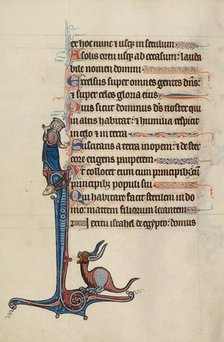 ex hoc nunc & usq; in seculum
A solis ortu usq; ad occasum: lauda
bile nomen domini
Excelsus super omnes gentes dns:
& super celos gloria eius
Quis sicut dominus ds noster qui
in altis habitat: & humilia respicit
in celo & in terra
Suscitans a terra inopem: & de ster
core erigens pauperem
Ut collocet eum cum principib;: cum
principib; populi sui
Qui habitare facit sterilem in do
mo: matrem filiorum letantem
In exitu israhel de egypto: domus